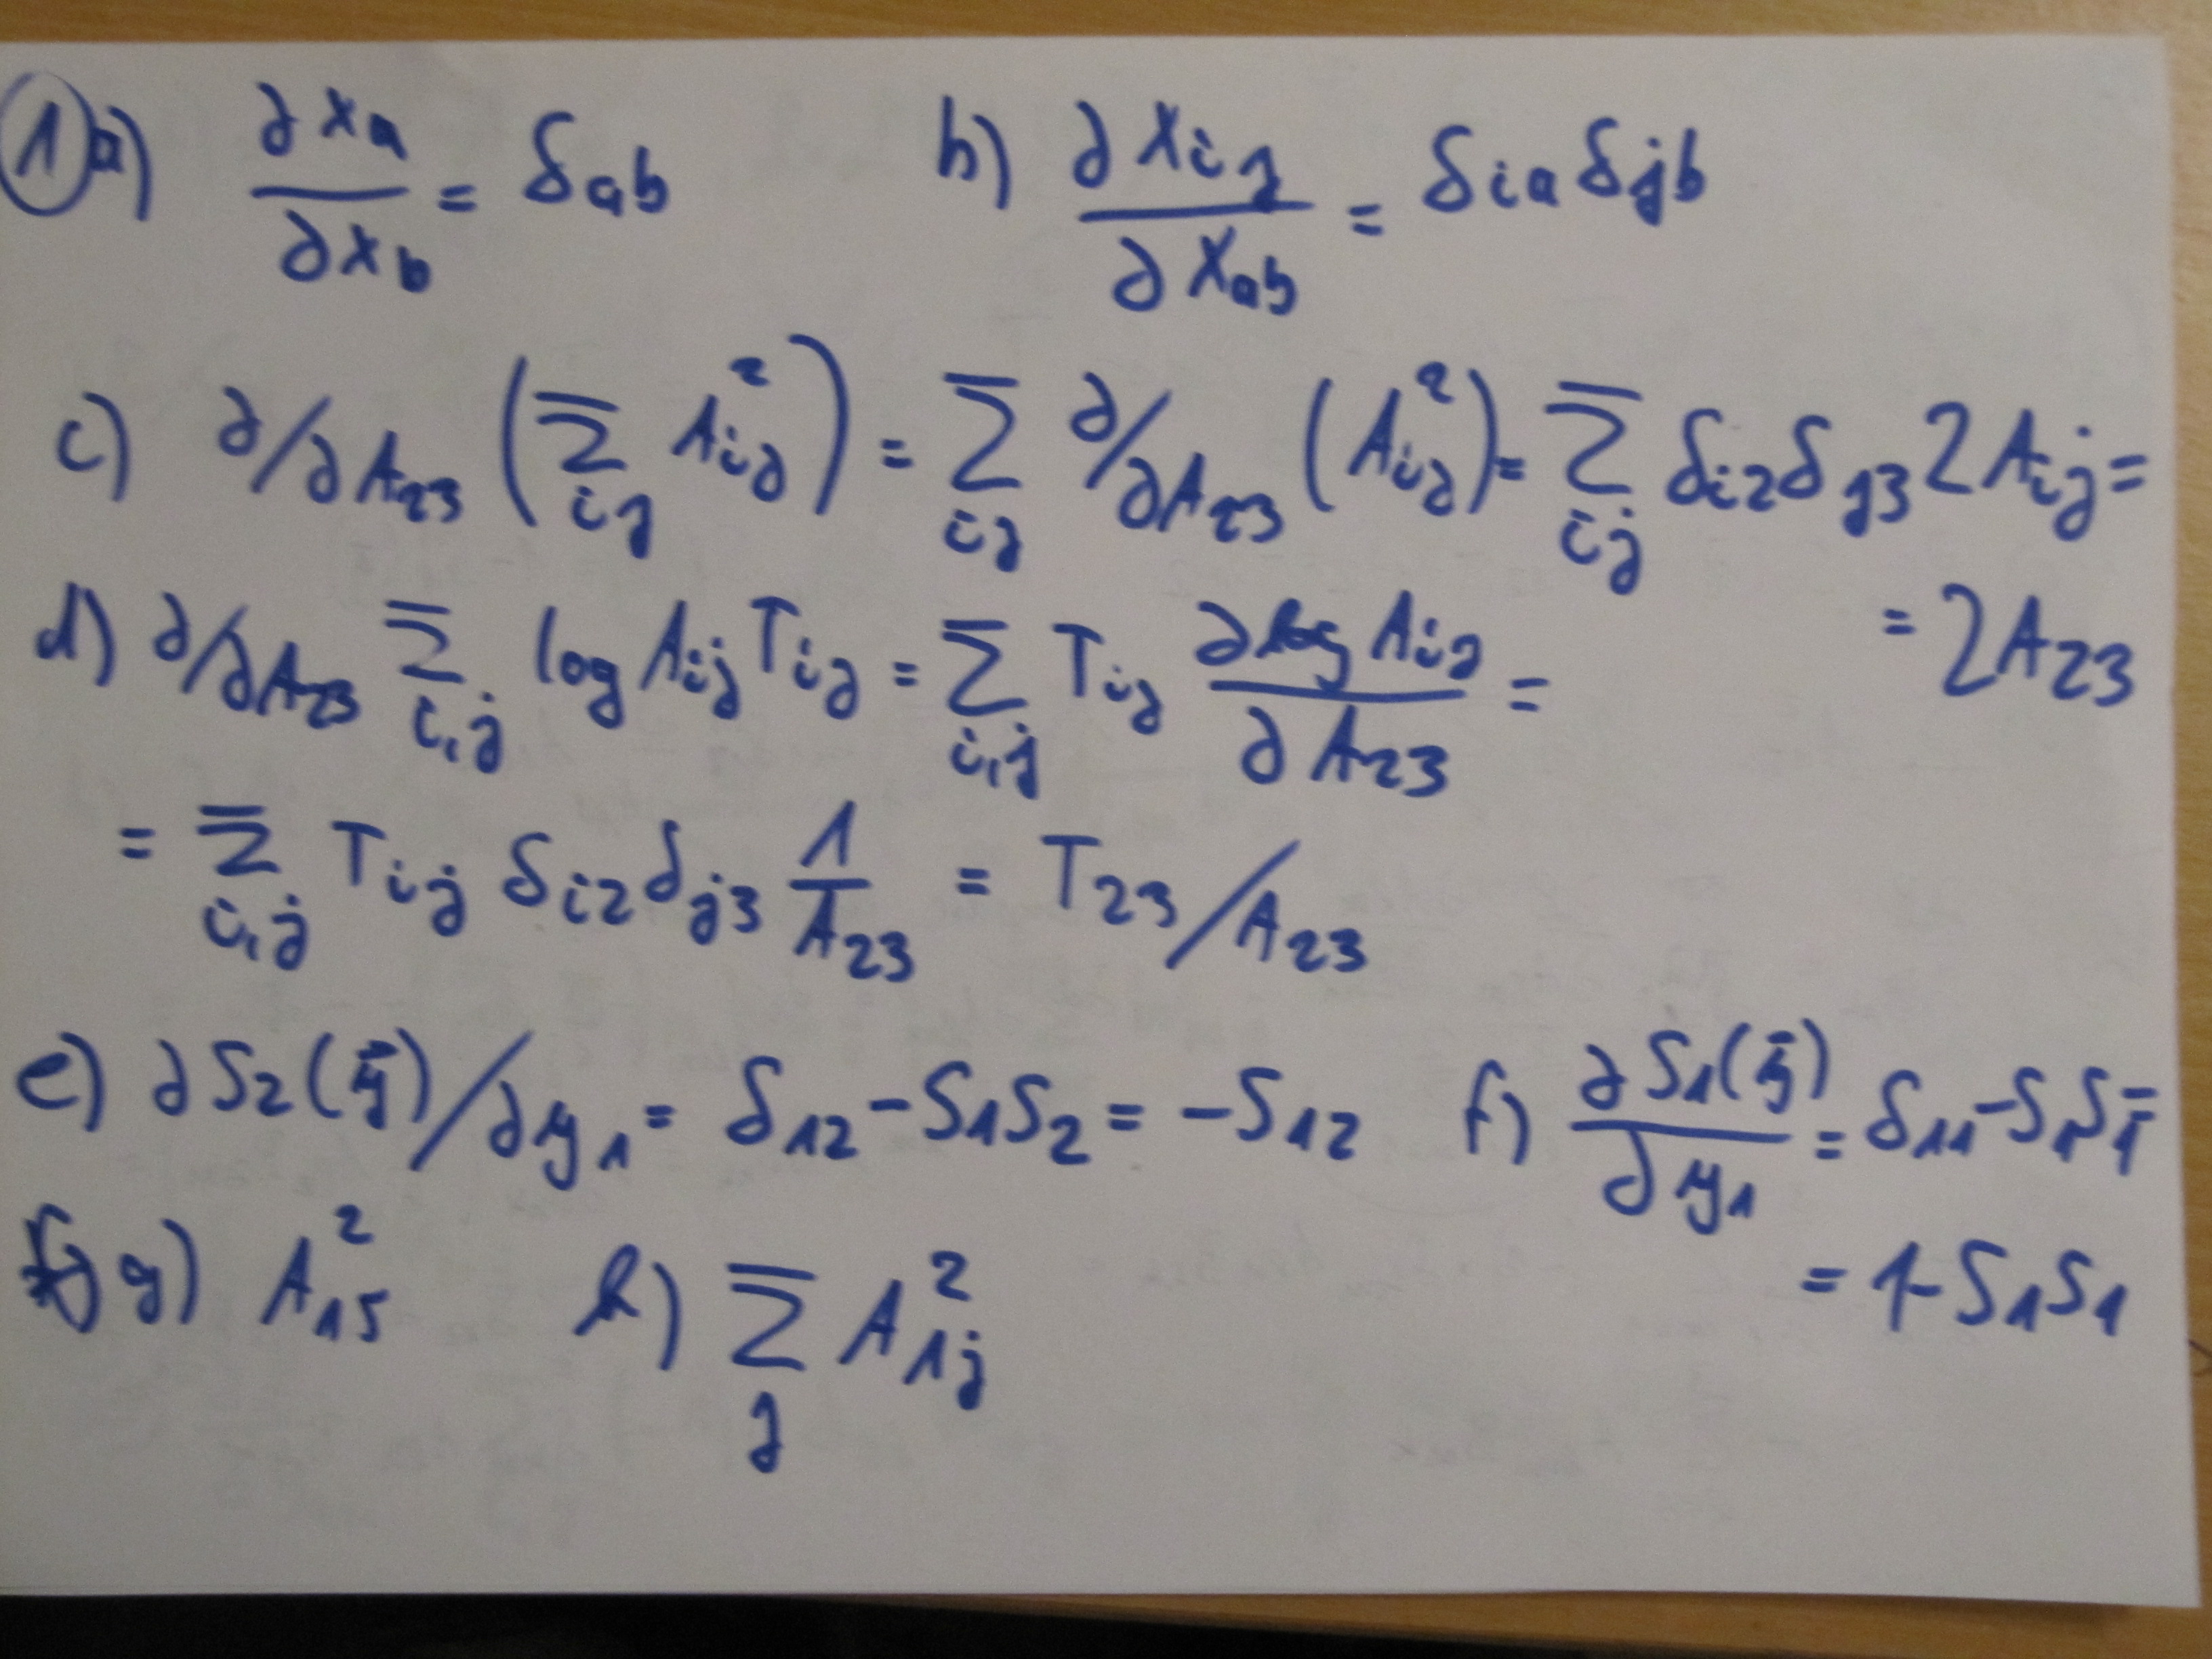 ① a) ∂xₐ/∂x_b = δ_ab    b) ∂X_ij/∂X_ab = δ_ia δ_jb
c) ∂/∂A₂₃ (Σ_ij A_ij²) = Σ_ij ∂/∂A₂₃ (A_ij²) = Σ_ij δ_i2 δ_j3 2A_ij =
= 2A₂₃
d) ∂/∂A₂₃ Σ_i,j log A_ij T_ij = Σ_i,j T_ij ∂log A_ij/∂A₂₃ =
= Σ_i,j T_ij δ_i2 δ_j3 1/A₂₃ = T₂₃/A₂₃
e) ∂S₂(ȳ)/∂y₁ = δ₁₂ - S₁S₂ = -S₁₂    f) ∂S₁(ȳ)/∂y₁ = δ₁₁ - S₁S₁ =
= 1 - S₁S₁
g) A₁₅²    h) Σ_j A_1j²